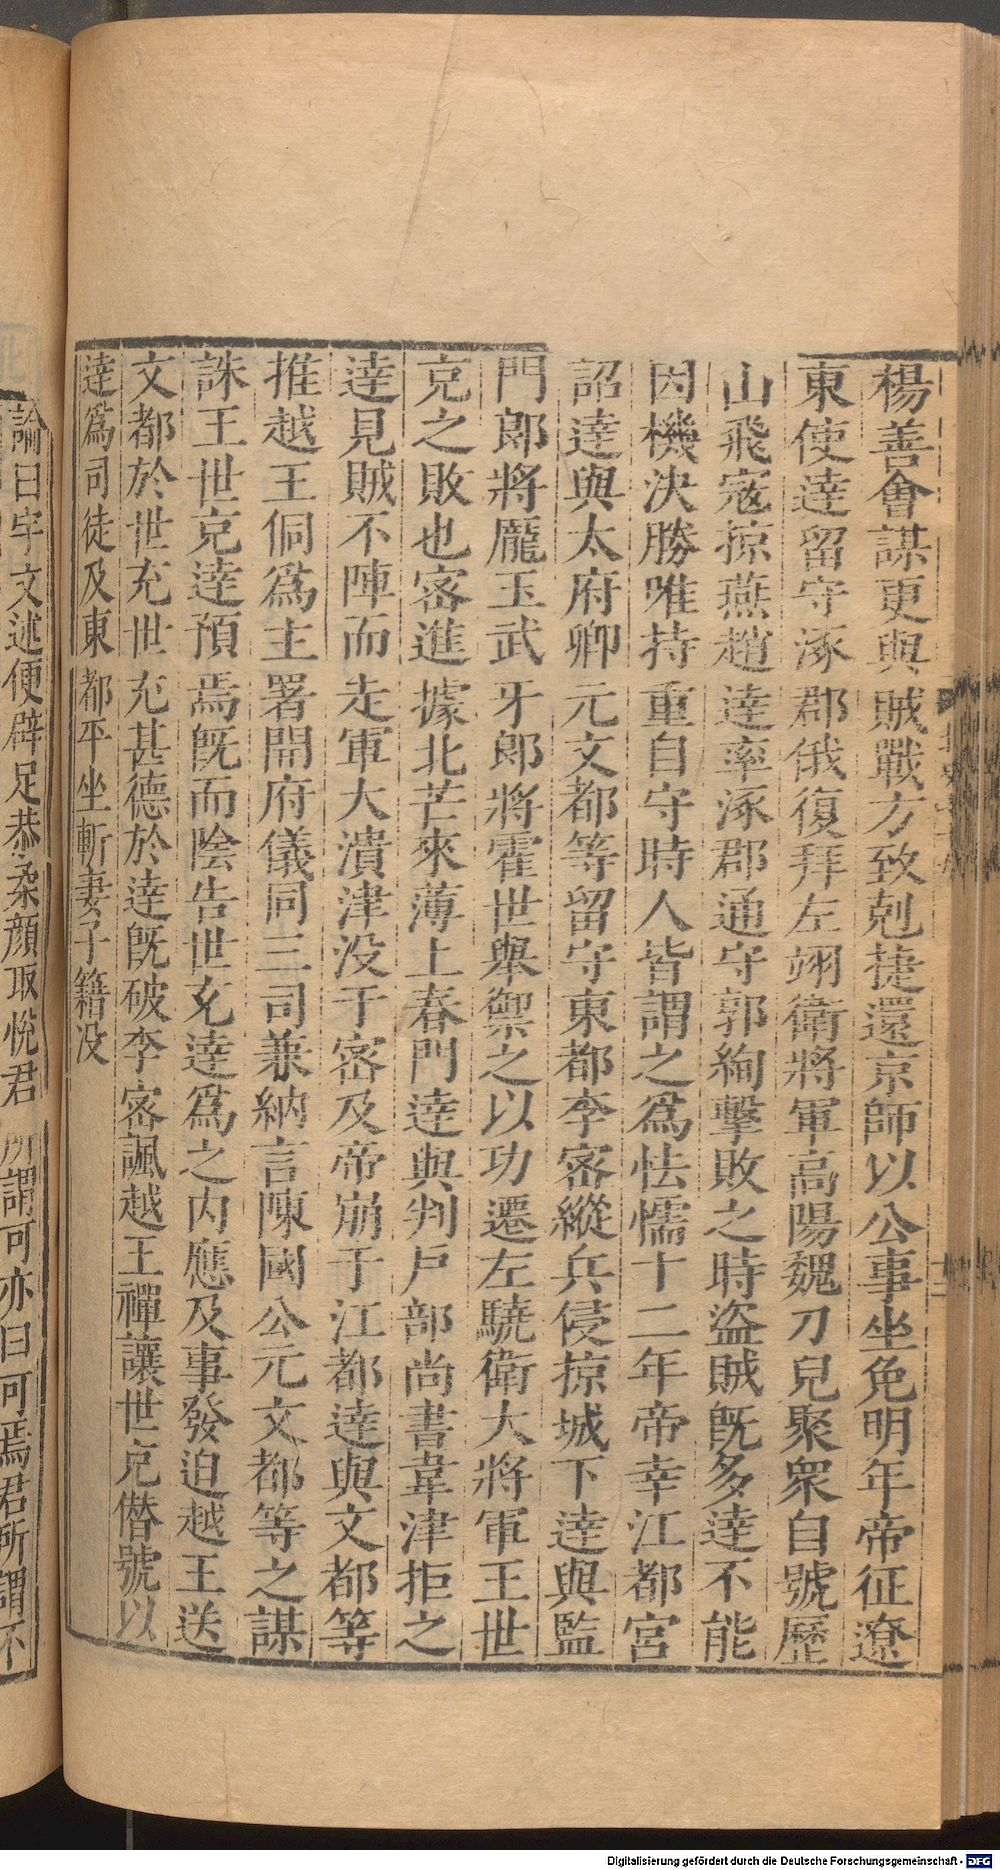 楊善會謀更與賊戰方致剋捷還京師以公事坐免明年帝征遼
東使達留守涿郡俄復拜左翊衛將軍高陽魏刀兒聚衆自號歷
山飛寇掠燕趙達率涿郡通守郭絢擊敗之時盜賊既多達不能
因機決勝唯持重自守時人皆謂之爲怯懦十二年帝幸江都宮
詔達與太府卿元文都等留守東都李密縱兵侵掠城下達與監
門郎將龐玉武牙郎將霍世舉禦之以功遷左驍衛大將軍王世
充之敗也密進據北芒來薄上春門達與判戶部尚書韋津拒之
達見賊不陣而走軍大潰津没于密及帝崩于江都達與文都等
推越王侗爲主署開府儀同三司兼納言陳國公元文都等之謀
誅王世充達預焉既而陰告世充達爲之內應及事發迫越王送
文都於世充世充甚德於達既破李密諷越王禪讓世充僭號以
達爲司徒及東都平坐斬妻子籍没
論曰宇文述便辟足恭柔顔取悅君所謂可亦曰可焉君所謂不
Digitalisierung gefördert durch die Deutsche Forschungsgemeinschaft - DFG